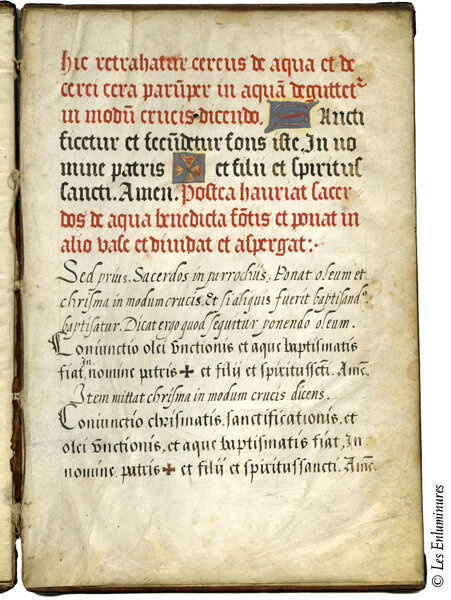 hic retrahatur cereus de aqua et de
cerei cera parũper in aquã deguttet'
in modũ crucis dicendo. Sancti
ficetur et fecũdetur fons iste. In no
mine patris ✠ et filii et spiritus
sancti. Amen. Postea hauriat sacer
dos de aqua benedicta fõtis et ponat in
alio vase et diuidat et aspergat:
Sed prius, Sacerdos in parrochiis, Ponat oleum et
chrisma in modum crucis, Et si aliquis fuerit baptisand9
baptisatur. Dicat ergo quod sequitur ponendo oleum.
Coniunctio olei vnctionis et aque baptismatis
fiat, In nomine patris ✠ et filij et spiritus scti. Amẽ.
Item mittat chrisma in modum crucis dicens.
Coniunctio chrismatis, sanctificationis, et
olei vnctionis, et aque baptismatis fiat, In
nomine patris ✠ et filij et spiritussancti. Amẽ.
© Les Enluminures